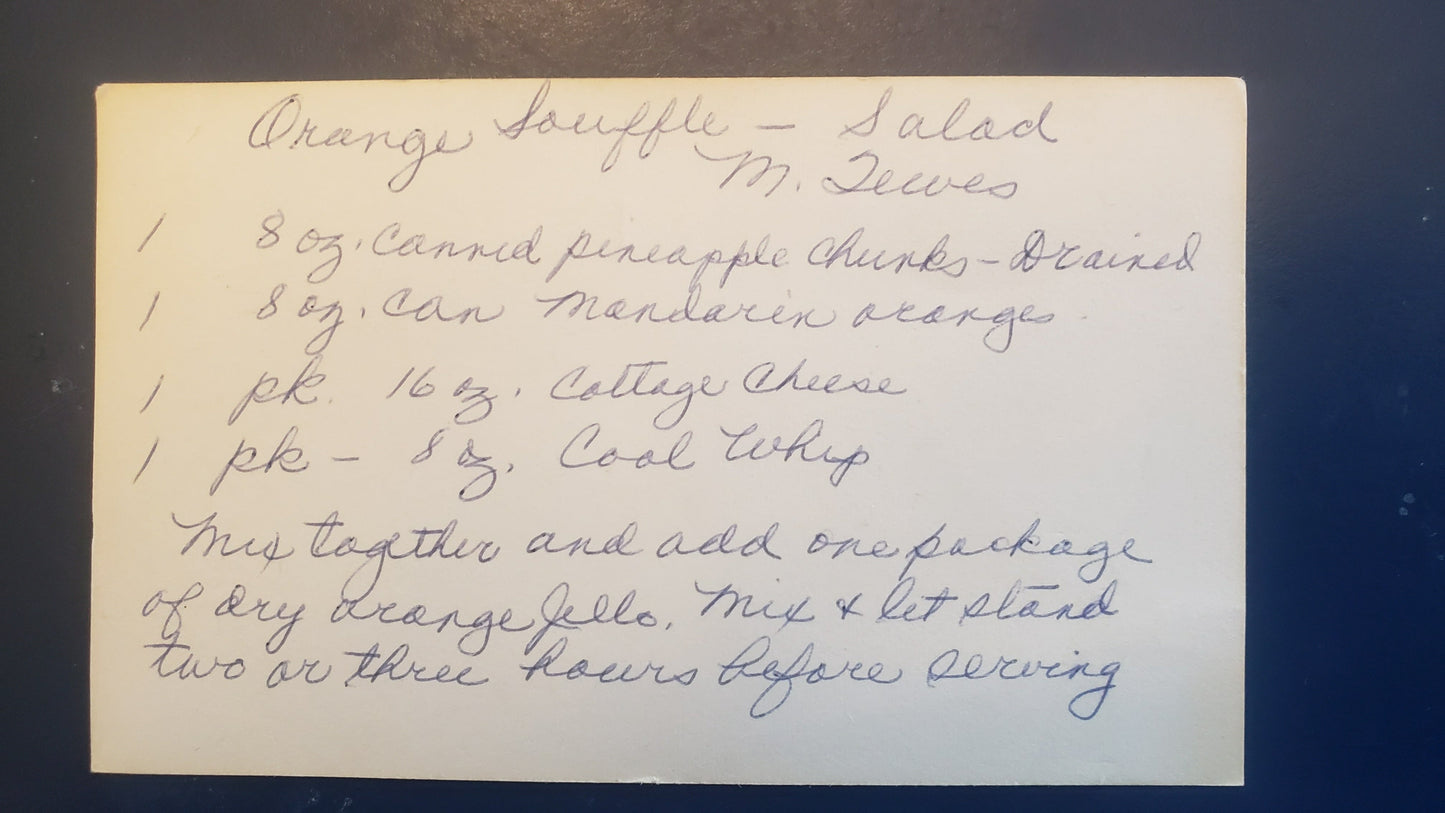 Orange Souffle - Salad
M. Tewes
1 8 oz. canned pineapple chunks - Drained
1 8 oz. can Mandarin oranges
1 pk. 16 oz. Cottage Cheese
1 pk - 8 oz. Cool Whip
Mix together and add one package
of dry orange Jello. Mix & let stand
two or three hours before serving